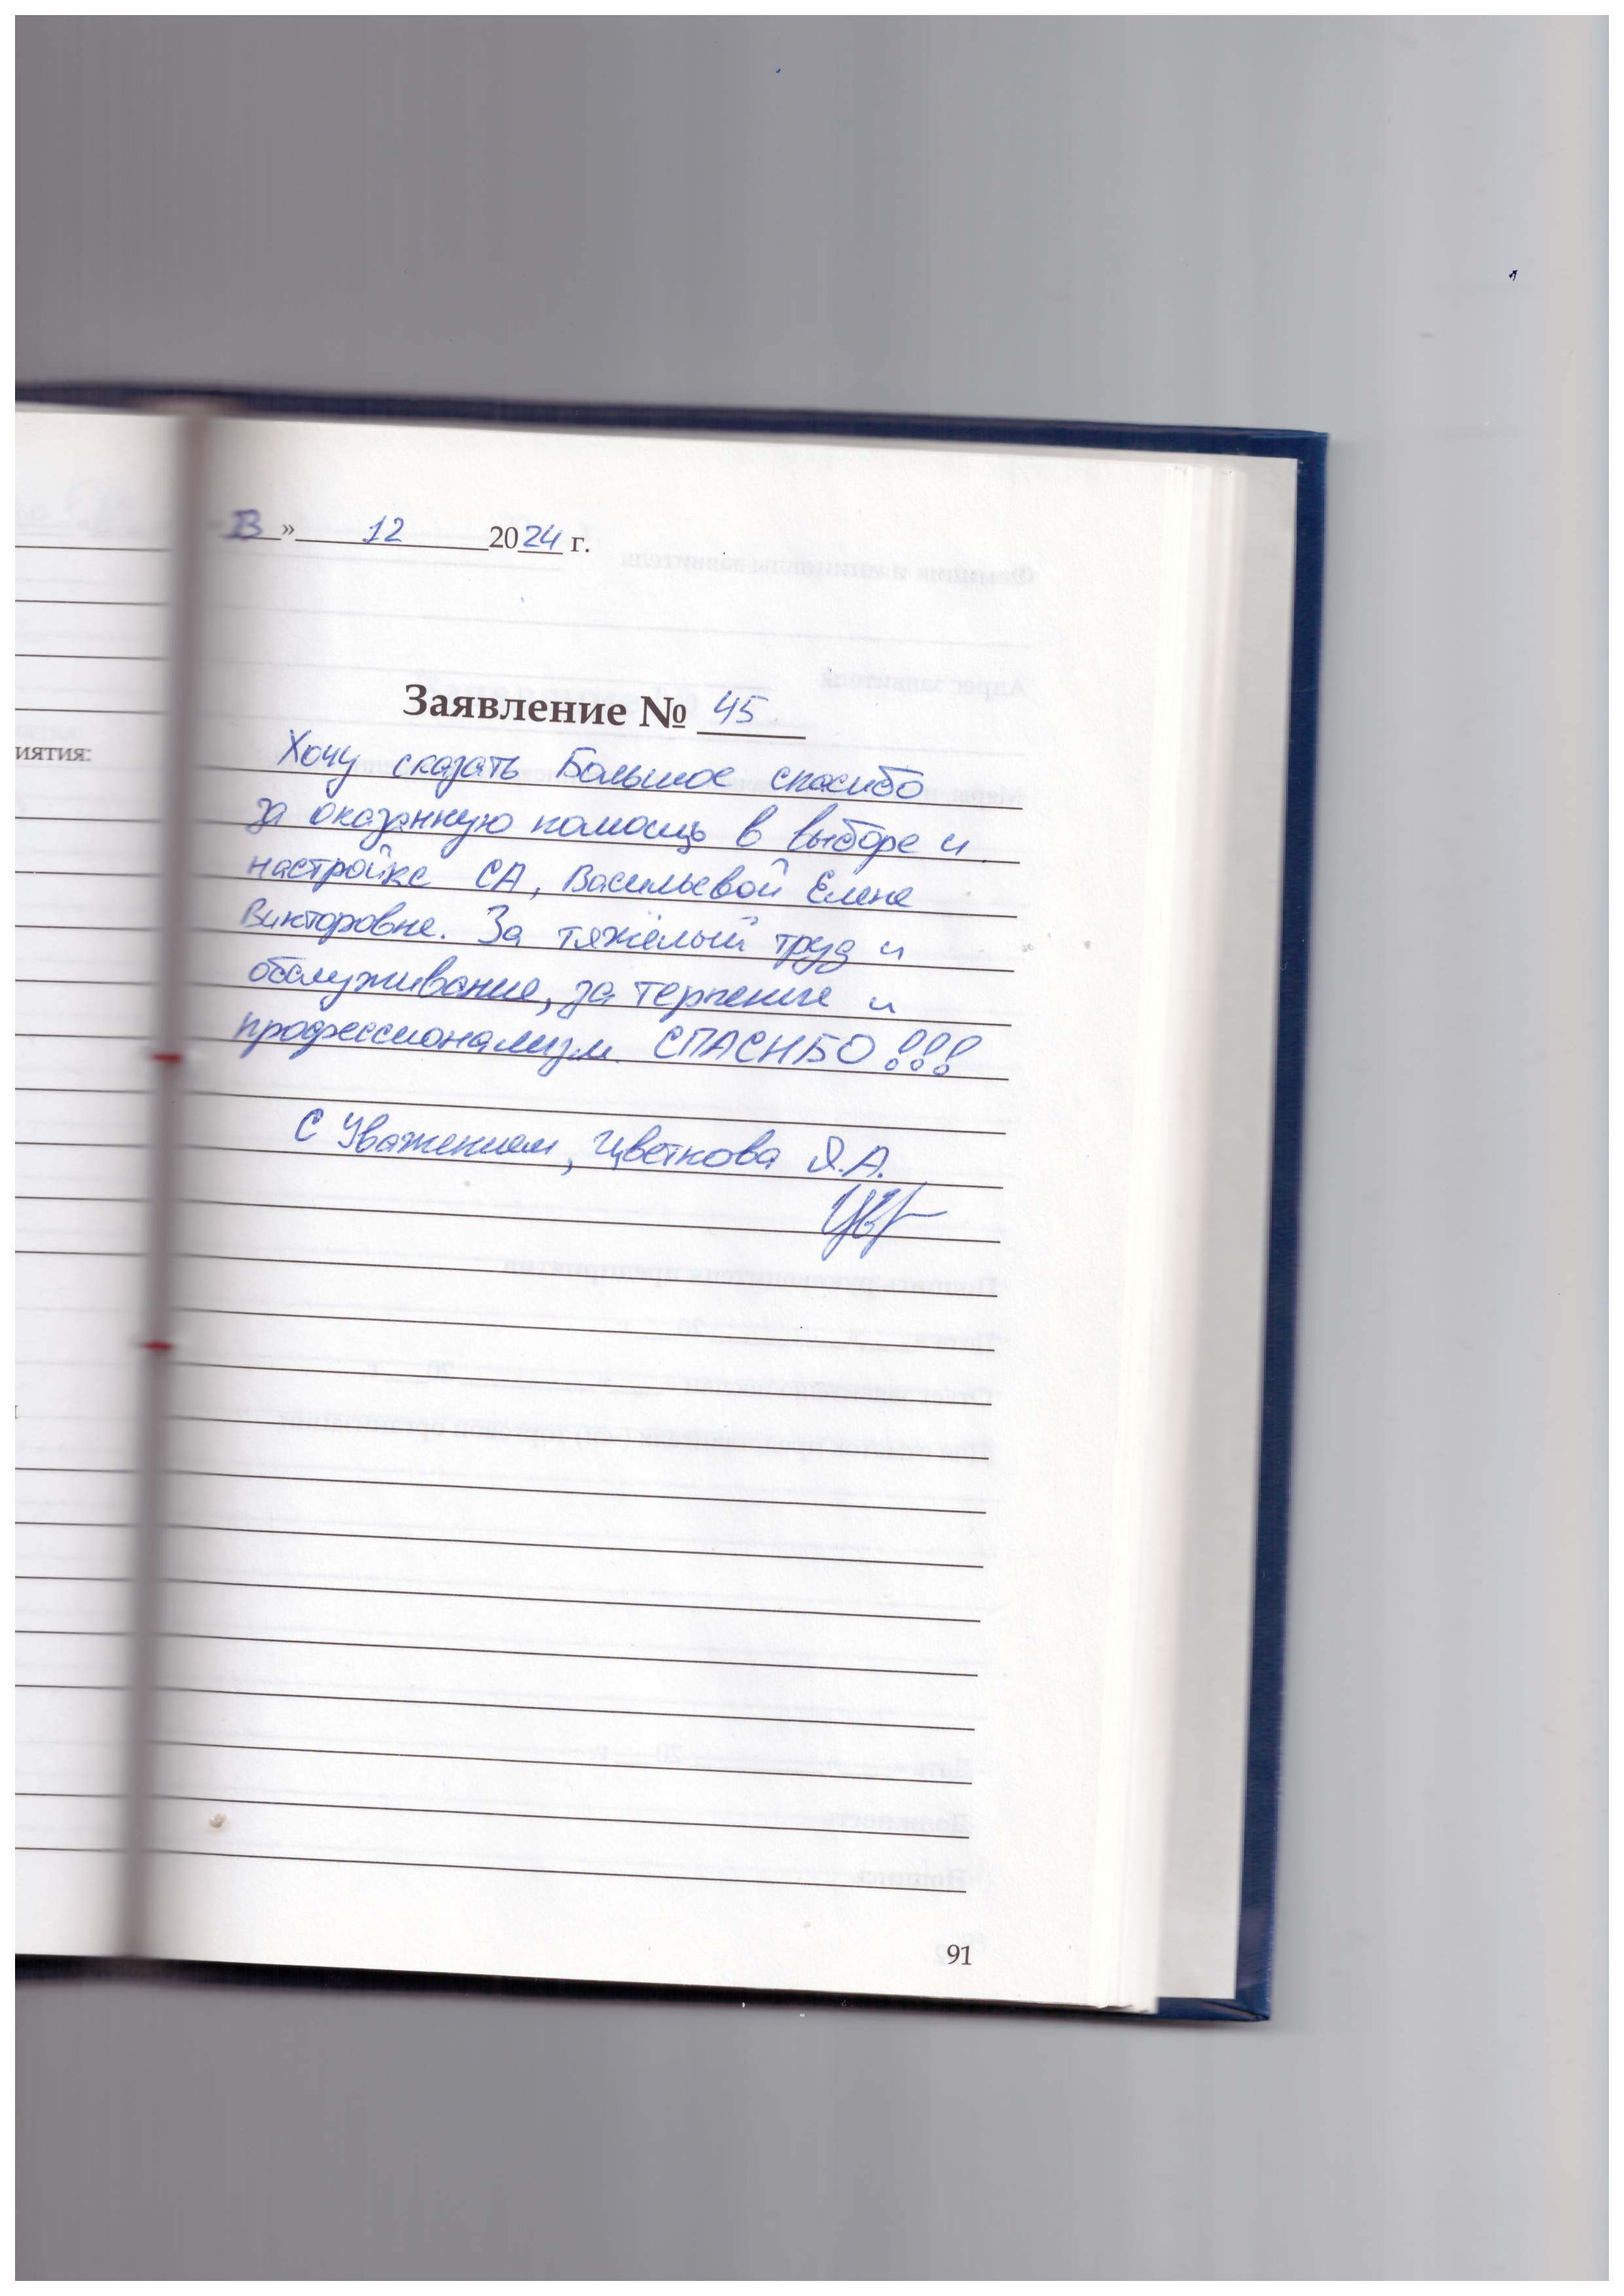 13 » 12 2024 г.
Заявление № 45
иятия:
Хочу сказать Большое спасибо
за оказанную помощь в выборе и
настройке СА, Васильевой Елене
Викторовне. За тяжёлый труд и
обслуживание, за терпение и
профессионализм. СПАСИБО!!!
С Уважением, Цветкова Я.А.
91